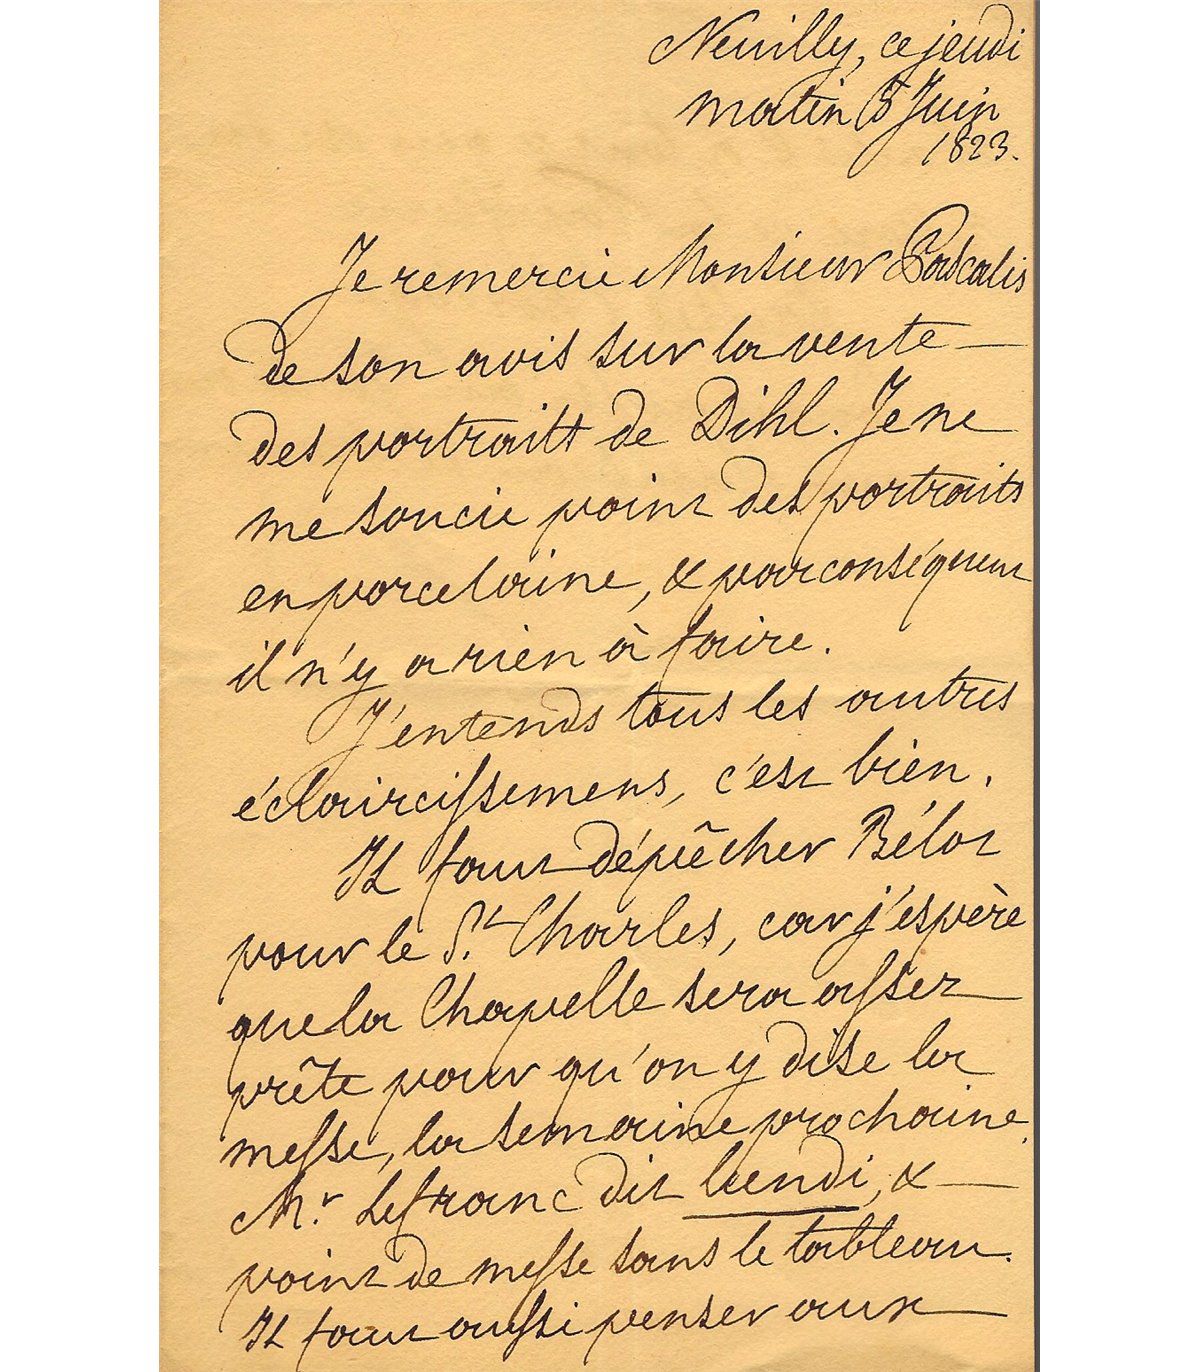 Neuilly, ce jeudi
matin 5 Juin
1823.
Je remercie Monsieur Pascalis
de son avis sur la vente
des portraits de Dihl. Je ne
me soucie point des portraits
en porcelaine, & par conséquent
il n'y a rien à faire.
J'entends tous les autres
éclaircissemens, c'est bien.
Il faut dépêcher Bélot
pour le St. Charles, car j'espère
que la Chapelle sera assez
prête pour qu'on y dise la
messe, la semaine prochaine.
Mr. Lefranc dit lundi, &
point de messe sans le tableau.
Il faut aussi penser aux